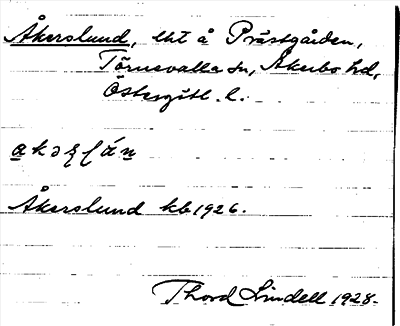 Åkerslund, lht å Prästgården,
Törnevalla sn, Åkerbo hd,
Östergötl. l.
Åkerslund kb 1926.
Thord Lindell 1928.